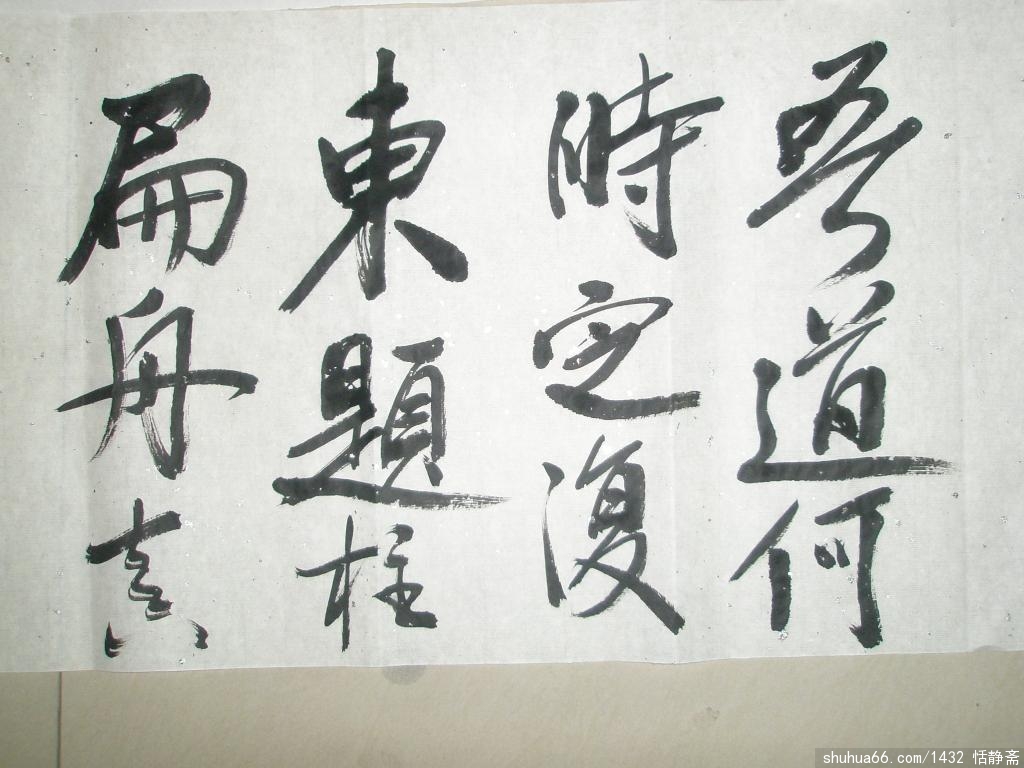 吾道何
時定復
東題柱
扁舟真
shuhua66.com/1432 恬静斋